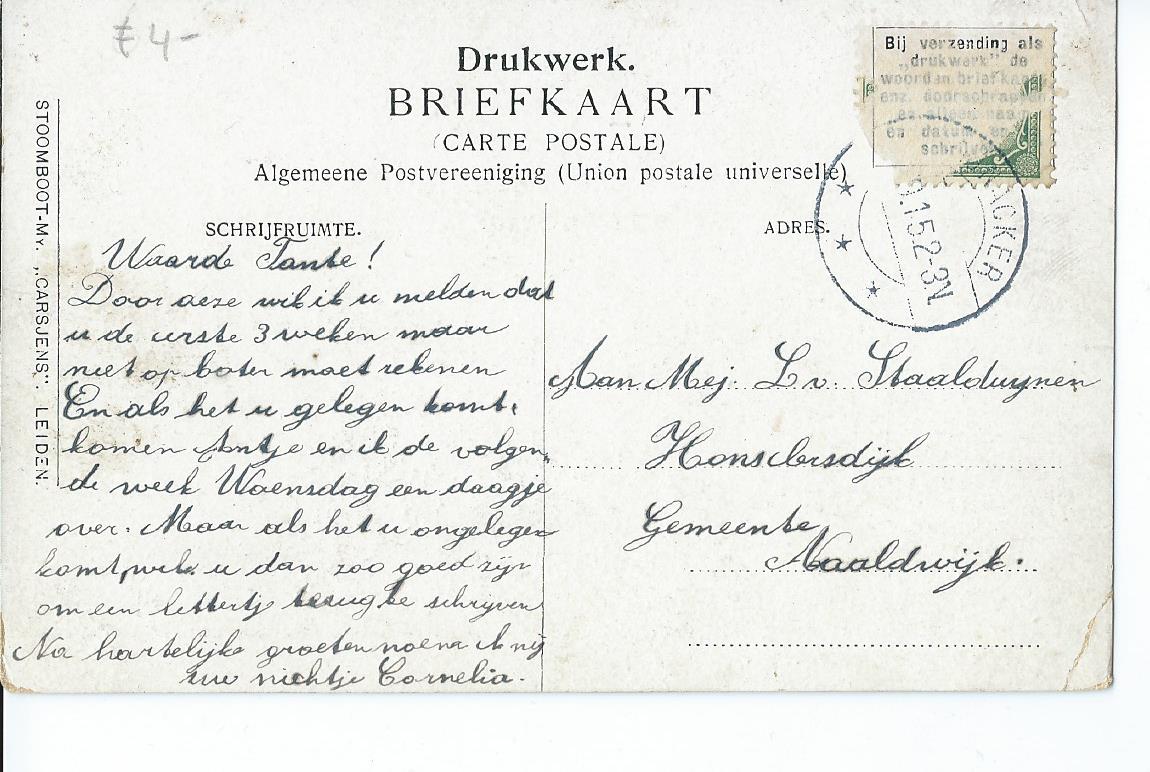 £ 4-
Drukwerk.
BRIEFKAART
(CARTE POSTALE)
Algemeene Postvereeniging (Union postale universelle)
Bij verzending als
„drukwerk” de
woorden briefkaart
enz. doorschrappen
en alleen naam
en datum en
schrijven
ACKER
.15.2-3N
STOOMBOOT-My. „CARSJENS”. LEIDEN.
SCHRIJFRUIMTE.
Waarde Tante!
Door deze wil ik u melden dat
u de eerste 3 weken maar
niet op boter moet rekenen
En als het u gelegen komt,
komen Antje en ik de volgen„
de week Woensdag een daagje
over. Maar als het u ongelegen
komt, wil u dan zoo goed zijn
om een lettertje terug te schrijven
Na hartelijke groeten noem ik mij
uw nichtje Cornelia.
ADRES.
Aan Mej. L v. Staalduynen
Honselersdijk
Gemeente
Naaldwijk.